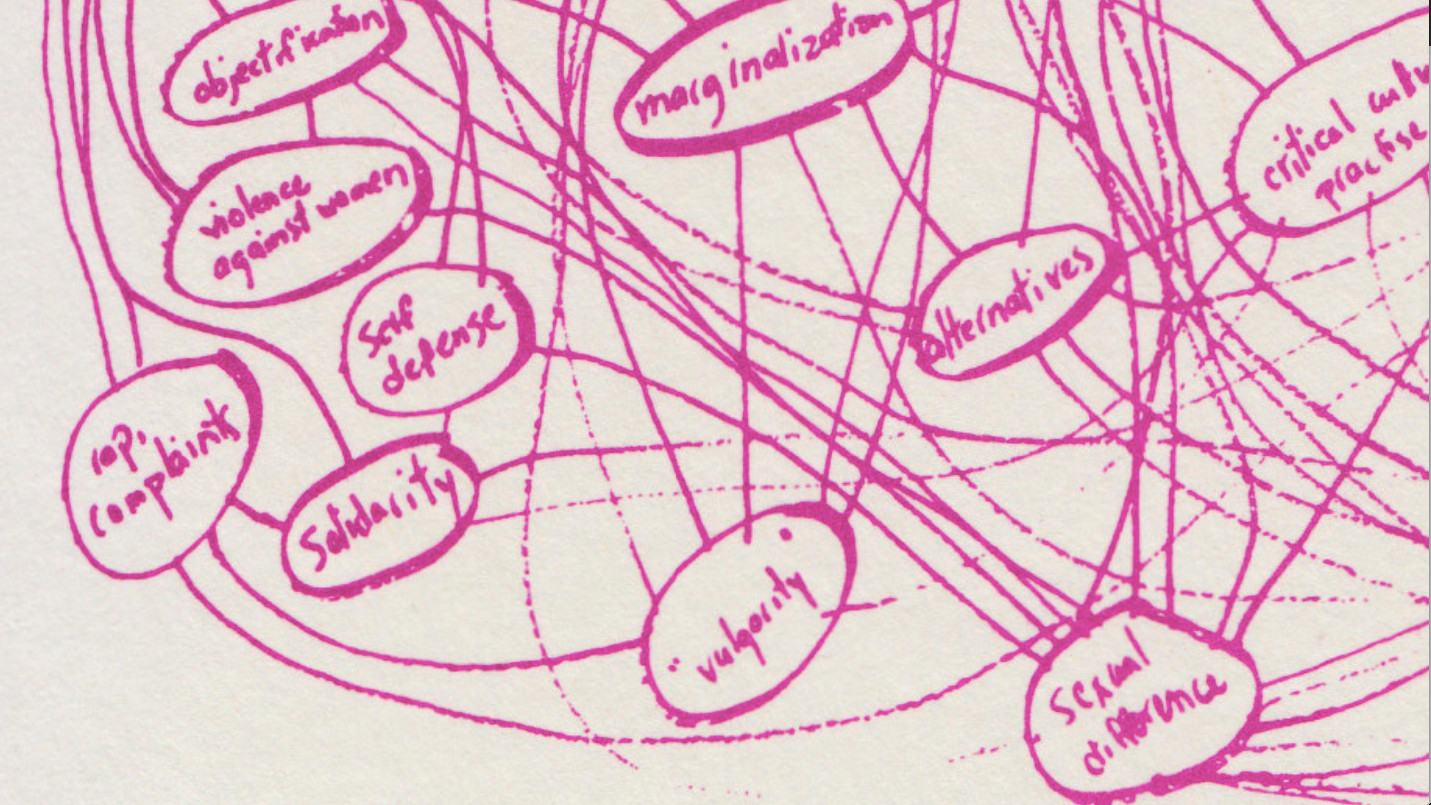 objectification
marginalization
critical
practise
violence
against women
alternatives
self
defense
complaints
Solidarity
"vulgarity"
sexual
difference